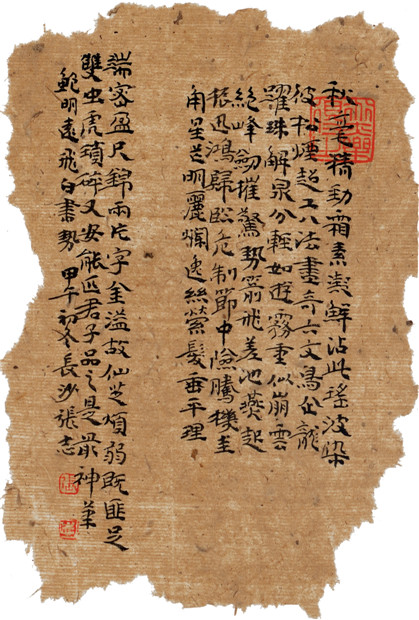 秋毫精勁霜素凝鮮沾此瑤波染
彼松煙超工八法盡奇六文鳥企龍
躍珠解泉分輕如遊霧重似崩雲
絕峰劍摧驚勢箭飛差池燕起
振迅鴻歸臨危制節中險騰機圭
角星芒明麗爛逸絲縈髮垂平理
端密盈尺錦兩片字金溢故仙芝煩弱既匪足
雙虫虎瑣碎又安能匹君子品之是最神筆
鮑明遠飛白書勢 甲午初冬長沙張志